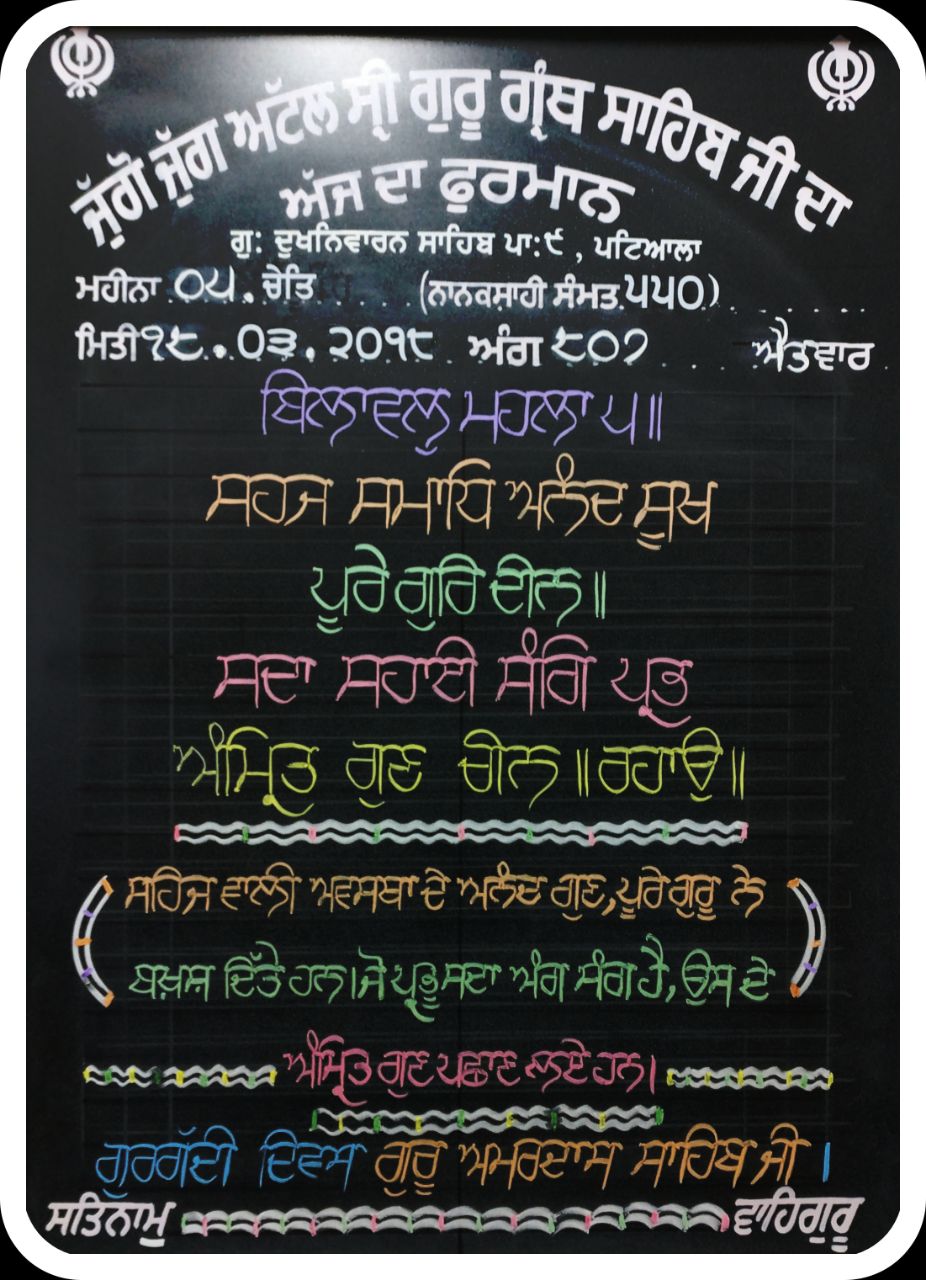 ਜੁੱਗੋ ਜੁੱਗ ਅਟੱਲ ਸ੍ਰੀ ਗੁਰੂ ਗ੍ਰੰਥ ਸਾਹਿਬ ਜੀ ਦਾ
ਅੱਜ ਦਾ ਫੁਰਮਾਨ
ਗੁ: ਦੁਖਨਿਵਾਰਨ ਸਾਹਿਬ ਪਾ:੯ , ਪਟਿਆਲਾ
ਮਹੀਨਾ ੦੫. ਚੇਤਿ (ਨਾਨਕਸ਼ਾਹੀ ਸੰਮਤ ੫੫੦)
ਮਿਤੀ ੧੮.੦੩.੨੦੧੮ ਅੰਗ ੮੦੭ ਐਤਵਾਰ
ਬਿਲਾਵਲੁ ਮਹਲਾ ੫॥
ਸਹਜ ਸਮਾਧਿ ਅਨੰਦ ਸੂਖ
ਪੂਰੇ ਗੁਰਿ ਦੀਨ॥
ਸਦਾ ਸਹਾਈ ਸੰਗਿ ਪ੍ਰਭ
ਅੰਮ੍ਰਿਤ ਗੁਣ ਚੀਨ॥ਰਹਾਉ॥
ਸਹਿਜ ਵਾਲੀ ਅਵਸਥਾ ਦੇ ਅਨੰਦ ਗੁਣ,ਪੂਰੇ ਗੁਰੂ ਨੇ
ਬਖ਼ਸ਼ ਦਿੱਤੇ ਹਨ।ਜੋ ਪ੍ਰਭੂ ਸਦਾ ਅੰਗ ਸੰਗ ਹੈ,ਉਸ ਦੇ
ਅੰਮ੍ਰਿਤ ਗੁਣ ਪਛਾਣ ਲਏ ਹਨ।
ਗੁਰਗੱਦੀ ਦਿਵਸ ਗੁਰੂ ਅਮਰਦਾਸ ਸਾਹਿਬ ਜੀ ।
ਸਤਿਨਾਮੁ ਵਾਹਿਗੁਰੂ